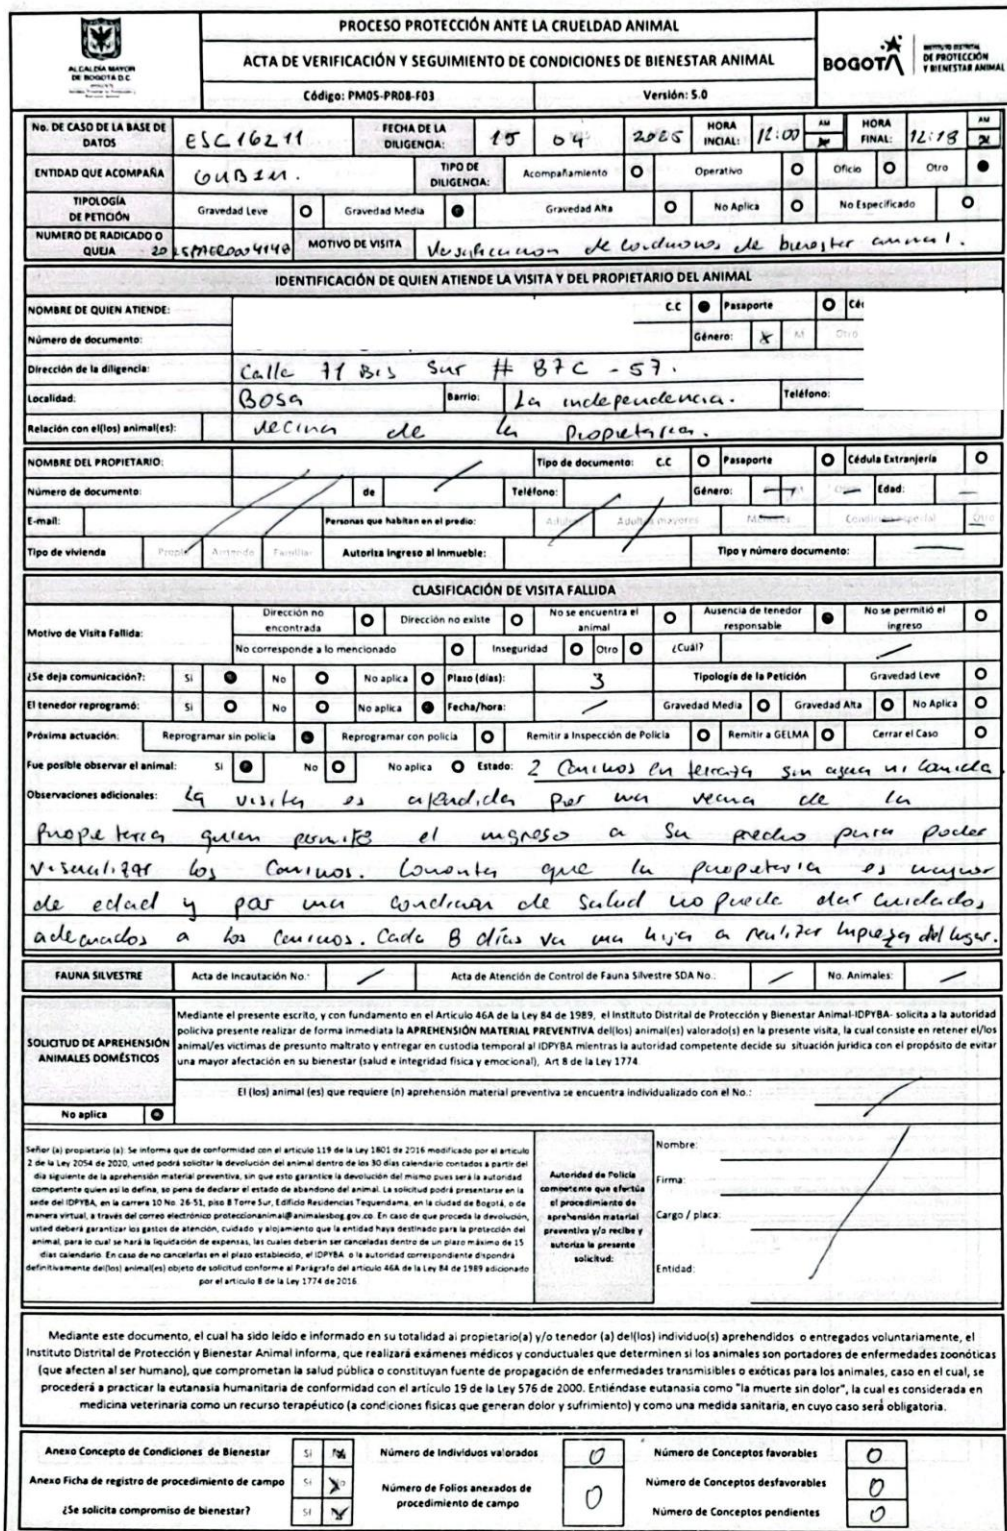 ALCALDÍA MAYOR
DE BOGOTÁ D.C.
PROCESO PROTECCIÓN ANTE LA CRUELDAD ANIMAL
ACTA DE VERIFICACIÓN Y SEGUIMIENTO DE CONDICIONES DE BIENESTAR ANIMAL
Código: PM05-PR08-F03 Versión: 5.0
BOGOTÁ INSTITUTO DISTRITAL DE PROTECCIÓN Y BIENESTAR ANIMAL
No. DE CASO DE LA BASE DE DATOS ESC16211 FECHA DE LA DILIGENCIA: 15 04 2025 HORA INCIAL: 12:00 AM HORA FINAL: 12:18 AM
ENTIDAD QUE ACOMPAÑA GUBIM. TIPO DE DILIGENCIA: Acompañamiento Operativo Oficio Otro
TIPOLOGÍA DE PETICIÓN Gravedad Leve Gravedad Media Gravedad Alta No Aplica No Especificado
NUMERO DE RADICADO O QUEJA MOTIVO DE VISITA Verificacion de condiciones de bienestar animal.
IDENTIFICACIÓN DE QUIEN ATIENDE LA VISITA Y DEL PROPIETARIO DEL ANIMAL
NOMBRE DE QUIEN ATIENDE: C.C Pasaporte Cé
Número de documento: Género: M Otro
Dirección de la diligencia: Calle 71 Bis Sur # 87C - 57.
Localidad: BOSA Barrio: La independencia. Teléfono:
Relación con el(los) animal(es): vecina de la propietaria.
NOMBRE DEL PROPIETARIO: Tipo de documento: C.C Pasaporte Cédula Extranjería
Número de documento: de Teléfono: Género: M Edad:
E-mail: Personas que habitan en el predio: Adultos Adultos mayores Menores Condición especial Otro
Tipo de vivienda Propia Arriendo Familiar Autoriza ingreso al inmueble: Tipo y número documento:
CLASIFICACIÓN DE VISITA FALLIDA
Motivo de Visita Fallida: Dirección no encontrada Dirección no existe No se encuentra el animal Ausencia de tenedor responsable No se permitió el ingreso
No corresponde a lo mencionado Inseguridad Otro ¿Cuál?
¿Se deja comunicación?: Si No No aplica Plazo (días): 3 Tipología de la Petición Gravedad Leve
El tenedor reprogramó: Si No No aplica Fecha/hora: Gravedad Media Gravedad Alta No Aplica
Próxima actuación: Reprogramar sin policía Reprogramar con policía Remitir a Inspección de Policía Remitir a GELMA Cerrar el Caso
Fue posible observar el animal: Si No No aplica Estado: 2 Caninos en terraza sin agua ni comida.
Observaciones adicionales: La visita es atendida por una vecina de la
propietaria quien permite el ingreso a su predio para poder
visualizar los caninos. Comenta que la propietaria es mayor
de edad y por una condicion de salud no puede dar cuidados
adecuados a los caninos. Cada 8 días va una hija a realizar limpieza del lugar.
FAUNA SILVESTRE Acta de Incautación No.: Acta de Atención de Control de Fauna Silvestre SDA No.: No. Animales:
SOLICITUD DE APREHENSIÓN ANIMALES DOMÉSTICOS
Mediante el presente escrito, y con fundamento en el Articulo 46A de la Ley 84 de 1989, el Instituto Distrital de Protección y Bienestar Animal-IDPYBA- solicita a la autoridad
policiva presente realizar de forma inmediata la APREHENSIÓN MATERIAL PREVENTIVA del(los) animal(es) valorado(s) en la presente visita, la cual consiste en retener el/los
animal/es victimas de presunto maltrato y entregar en custodia temporal al IDPYBA mientras la autoridad competente decide su situación jurídica con el propósito de evitar
una mayor afectación en su bienestar (salud e integridad física y emocional), Art 8 de la Ley 1774
El (los) animal (es) que requiere (n) aprehensión material preventiva se encuentra individualizado con el No.:
No aplica
Señor (a) propietario (a): Se informa que de conformidad con el articulo 119 de la Ley 1801 de 2016 modificado por el articulo
2 de la Ley 2054 de 2020, usted podrá solicitar la devolución del animal dentro de los 30 días calendario contados a partir del
día siguiente de la aprehensión material preventiva, sin que esto garantice la devolución del mismo pues será la autoridad
competente quien así lo defina, so pena de declarar el estado de abandono del animal. La solicitud podrá presentarse en la
sede del IDPYBA, en la carrera 10 No. 26-51, piso 8 Torre Sur, Edificio Residencias Tequendama, en la ciudad de Bogotá, o de
manera virtual, a través del correo electrónico proteccionanimal@animalesbog.gov.co. En caso de que proceda la devolución,
usted deberá garantizar los gastos de atención, cuidado y alojamiento que la entidad haya destinado para la protección del
animal, para lo cual se hará la liquidación de expensas, las cuales deberán ser canceladas dentro de un plazo máximo de 15
días calendario. En caso de no cancelarlas en el plazo establecido, el IDPYBA o la autoridad correspondiente dispondrá
definitivamente del(los) animal(es) objeto de solicitud conforme al Parágrafo del artículo 46A de la Ley 84 de 1989 adicionado
por el artículo 8 de la Ley 1774 de 2016.
Autoridad de Policía competente que efectúa el procedimiento de aprehensión material preventiva y/o recibe y autoriza la presente solicitud:
Nombre:
Firma:
Cargo / placa:
Entidad:
Mediante este documento, el cual ha sido leído e informado en su totalidad al propietario(a) y/o tenedor (a) del(los) individuo(s) aprehendidos o entregados voluntariamente, el
Instituto Distrital de Protección y Bienestar Animal informa, que realizará exámenes médicos y conductuales que determinen si los animales son portadores de enfermedades zoonóticas
(que afecten al ser humano), que comprometan la salud pública o constituyan fuente de propagación de enfermedades transmisibles o exóticas para los animales, caso en el cual, se
procederá a practicar la eutanasia humanitaria de conformidad con el artículo 19 de la Ley 576 de 2000. Entiéndase eutanasia como "la muerte sin dolor", la cual es considerada en
medicina veterinaria como un recurso terapéutico (a condiciones físicas que generan dolor y sufrimiento) y como una medida sanitaria, en cuyo caso será obligatoria.
Anexo Concepto de Condiciones de Bienestar Si No Número de Individuos valorados 0 Número de Conceptos favorables 0
Anexo Ficha de registro de procedimiento de campo Si No Número de Folios anexados de procedimiento de campo 0 Número de Conceptos desfavorables 0
¿Se solicita compromiso de bienestar? Si No Número de Conceptos pendientes 0